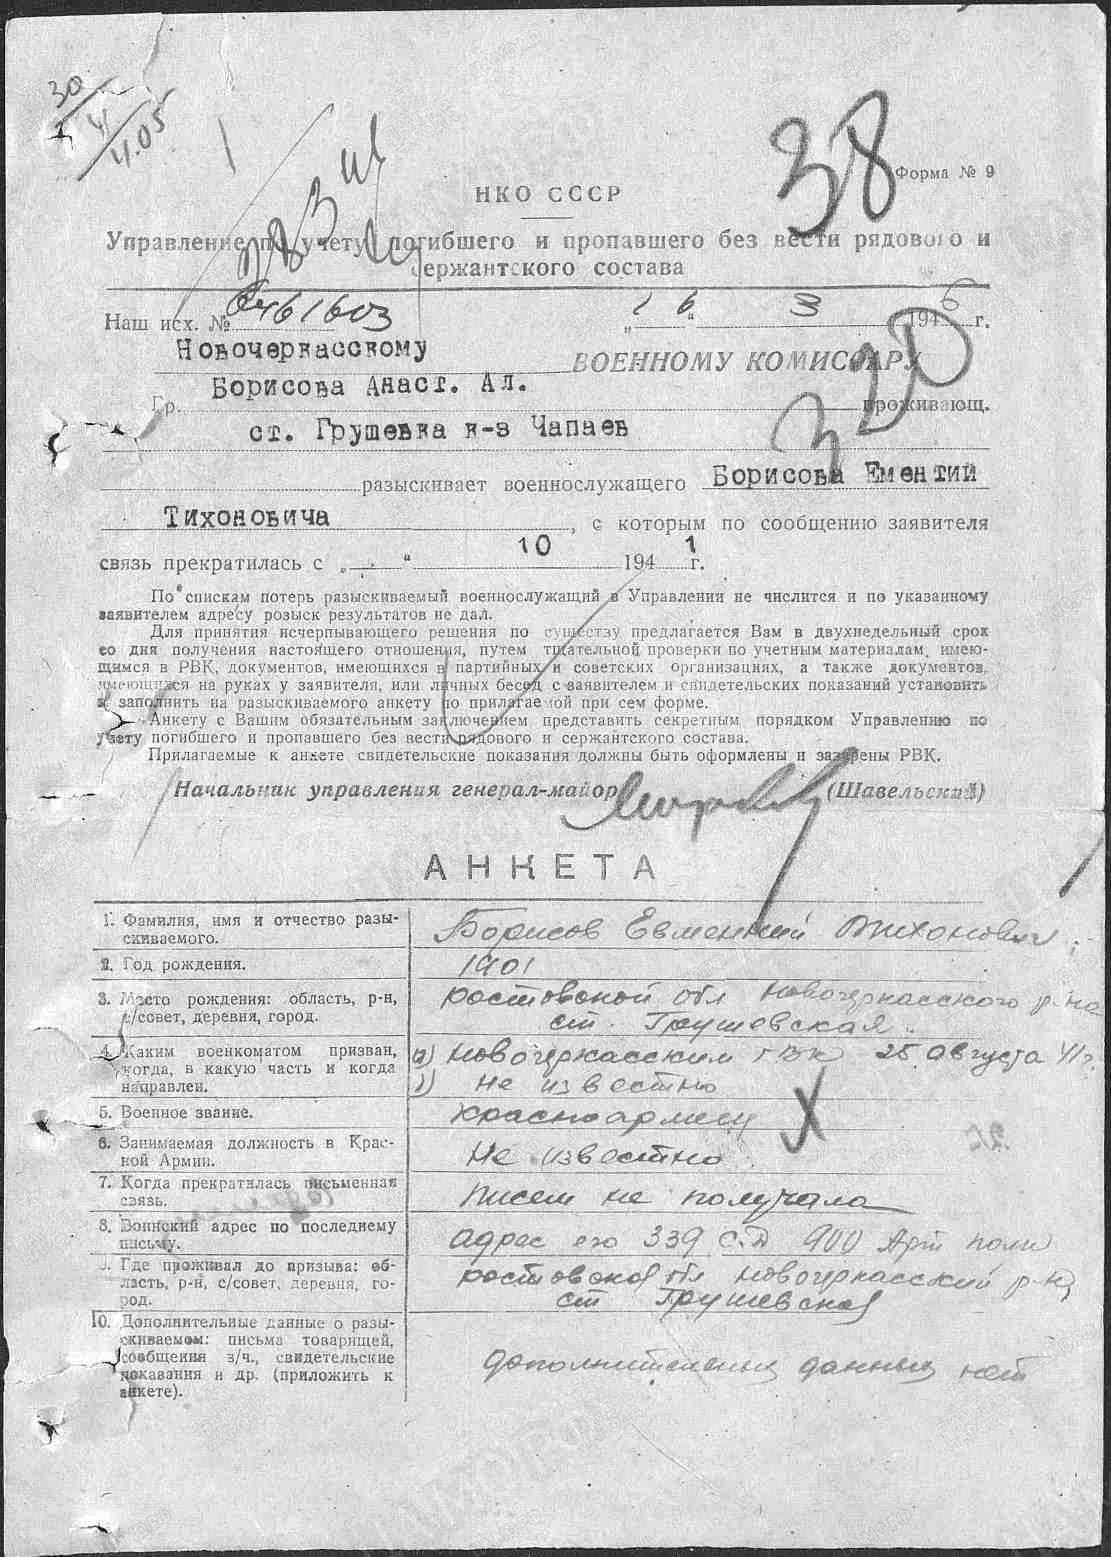 30
4.05
38
Форма № 9
НКО СССР
Управление по учету погибшего и пропавшего без вести рядового и
сержантского состава
Наш исх. № 0461603 „16“ 3 1946 г.
Новочеркасскому ВОЕННОМУ КОМИССАРУ
320
Гр. Борисова Анаст. Ал. проживающ.
ст. Грушевка к-з Чапаев
разыскивает военнослужащего Борисова Ементий
Тихоновича, с которым по сообщению заявителя
связь прекратилась с „ “ 10 1941 г.
По спискам потерь разыскиваемый военнослужащий в Управлении не числится и по указанному
заявителем адресу розыск результатов не дал.
Для принятия исчерпывающего решения по существу предлагается Вам в двухнедельный срок
со дня получения настоящего отношения, путем тщательной проверки по учетным материалам, имею-
щимся в РВК, документов, имеющихся в партийных и советских организациях, а также документов,
имеющихся на руках у заявителя, или личных бесед с заявителем и свидетельских показаний установить
и заполнить на разыскиваемого анкету по прилагаемой при сем форме.
Анкету с Вашим обязательным заключением представить секретным порядком Управлению по
учету погибшего и пропавшего без вести рядового и сержантского состава.
Прилагаемые к анкете свидетельские показания должны быть оформлены и заверены РВК.
Начальник управления генерал-майор (Шавельский)
АНКЕТА
1. Фамилия, имя и отчество разы-
скиваемого.
Борисов Евментий Тихонович
2. Год рождения.
1901
3. Место рождения: область, р-н,
с/совет, деревня, город.
Ростовской обл Новочеркасского р-на
ст. Грушевская
4. Каким военкоматом призван,
когда, в какую часть и когда
направлен.
а) Новочеркасским гвк 25 августа 41 г.
Не известно
5. Военное звание.
Красноармеец
6. Занимаемая должность в Крас-
ной Армии.
Не известно
7. Когда прекратилась письменная
связь.
Писем не получала
8. Воинский адрес по последнему
письму.
адрес его 339 С.Д 900 Арт полк
9. Где проживал до призыва: об-
ласть, р-н, с/совет, деревня, го-
род.
Ростовская обл Новочеркасский р-н
ст Грушевская
10. Дополнительные данные о разы-
скиваемом: письма товарищей,
сообщения з/ч., свидетельские
показания и др. (приложить к
анкете).
дополнительных данных нет